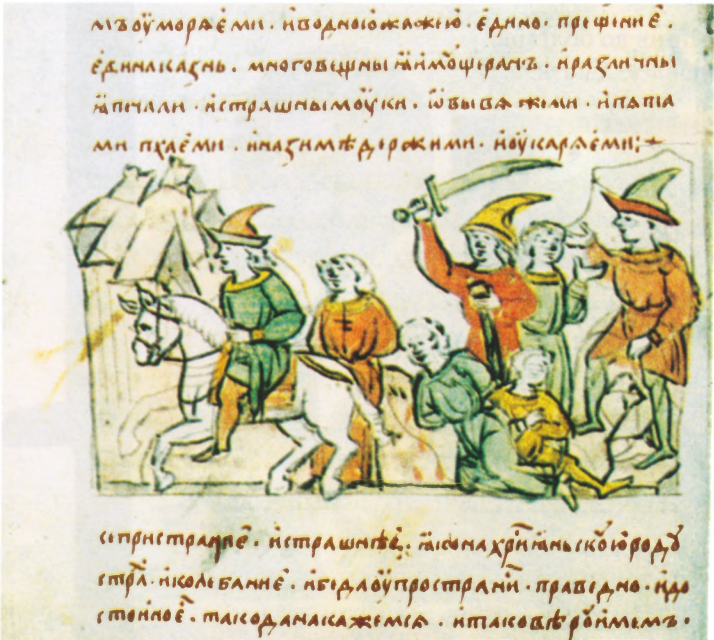 мъ оуморѧеми · и водною жажею · едино · прещение ·
едина казнь · многовещны ꙗ имоуще ранъ · и различны
ꙗ печали · и страшны моуки · ѡвы вѧжеми · и пѧта
ми пхаеми · и на зимѣ держими · и оукарѧеми;+
се пристраннее · и страшнѣе · ꙗко на хрⷭ҇тиꙗньско роду
страⷯ · и колебание · и беда оупространиⷭ · праведно · и до
стоиноеⷭ · тако да накажемсѧ · и тако вѣроу имемъ ·